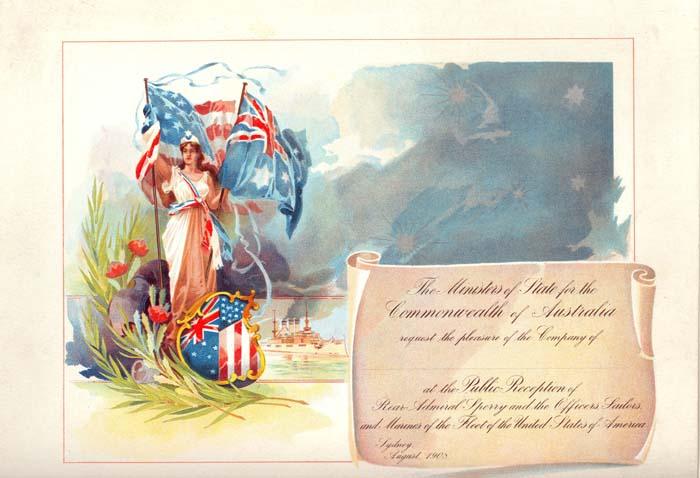 The Ministers of State for the
Commonwealth of Australia
request the pleasure of the Company of
at the Public Reception of
Rear-Admiral Sperry and the Officers, Sailors,
and Marines of the Fleet of the United States of America
Sydney,
August, 1908